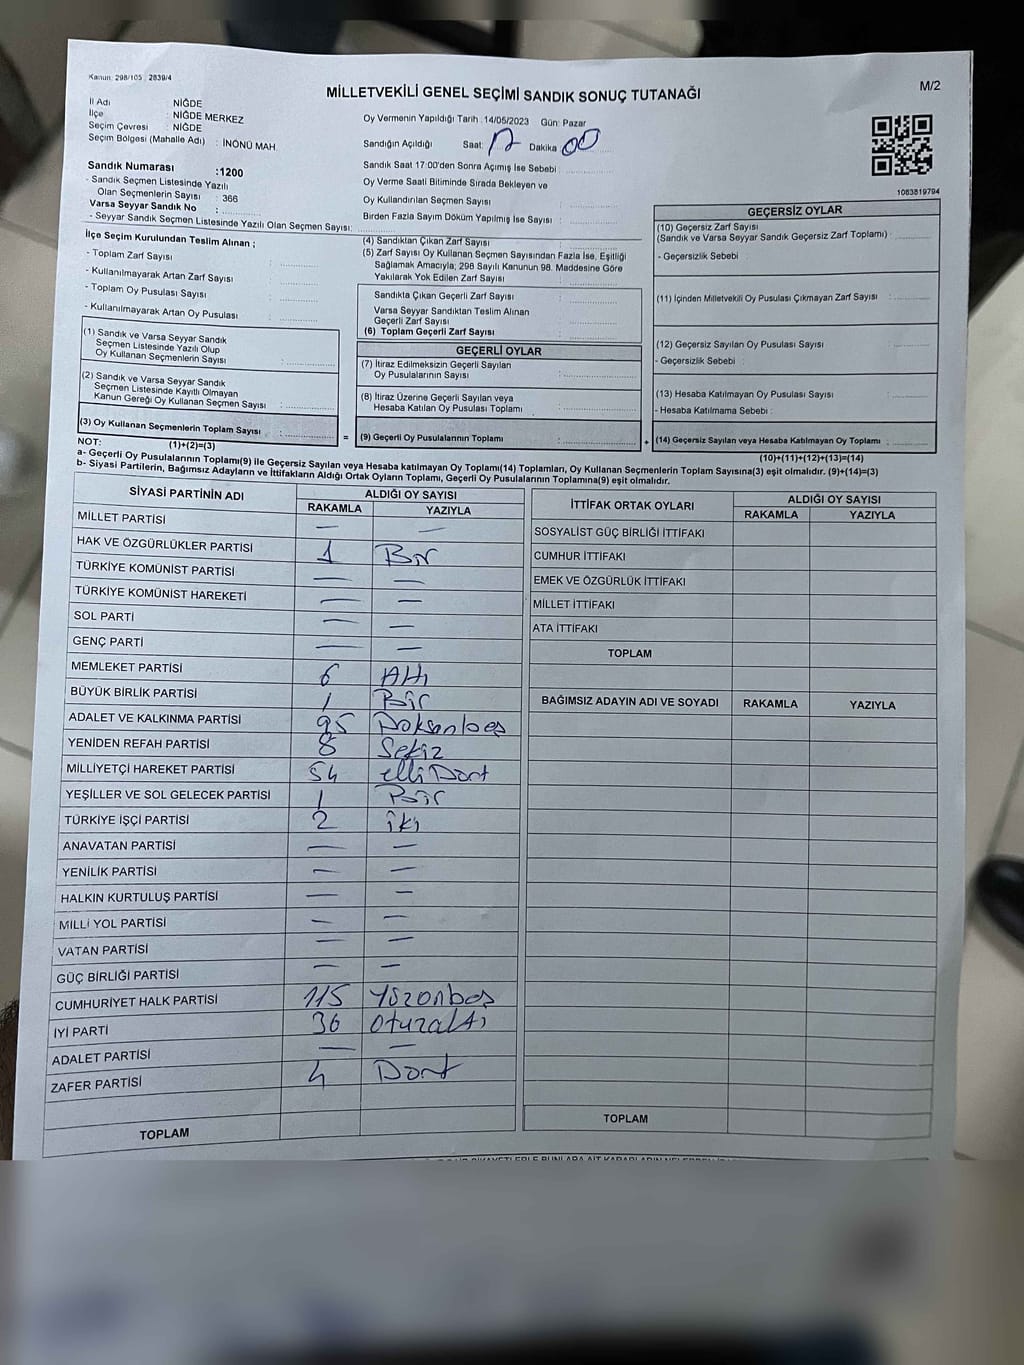 Kanun: 298/105 2839/4
M/2
MİLLETVEKİLİ GENEL SEÇİMİ SANDIK SONUÇ TUTANAĞI
İl Adı : NİĞDE
İlçe : NİĞDE MERKEZ
Seçim Çevresi : NİĞDE
Seçim Bölgesi (Mahalle Adı) : İNÖNÜ MAH.
Oy Vermenin Yapıldığı Tarih : 14/05/2023 Gün: Pazar
Sandığın Açıldığı Saat: 17 Dakika 00
Sandık Saat 17:00'den Sonra Açımış İse Sebebi :
Oy Verme Saati Bitiminde Sırada Bekleyen ve
Oy Kullandırılan Seçmen Sayısı :
Birden Fazla Sayım Döküm Yapılmış İse Sayısı :
1083819794
Sandık Numarası :1200
- Sandık Seçmen Listesinde Yazılı
Olan Seçmenlerin Sayısı : 366
Varsa Seyyar Sandık No :
- Seyyar Sandık Seçmen Listesinde Yazılı Olan Seçmen Sayısı:
İlçe Seçim Kurulundan Teslim Alınan ;
- Toplam Zarf Sayısı :
- Kullanılmayarak Artan Zarf Sayısı :
- Toplam Oy Pusulası Sayısı :
- Kullanılmayarak Artan Oy Pusulası :
(1) Sandık ve Varsa Seyyar Sandık
Seçmen Listesinde Yazılı Olup
Oy Kullanan Seçmenlerin Sayısı :
(2) Sandık ve Varsa Seyyar Sandık
Seçmen Listesinde Kayıtlı Olmayan
Kanun Gereği Oy Kullanan Seçmen Sayısı :
(3) Oy Kullanan Seçmenlerin Toplam Sayısı :
(1)+(2)=(3)
(4) Sandıktan Çıkan Zarf Sayısı :
(5) Zarf Sayısı Oy Kullanan Seçmen Sayısından Fazla İse, Eşitliği
Sağlamak Amacıyla; 298 Sayılı Kanunun 98. Maddesine Göre
Yakılarak Yok Edilen Zarf Sayısı :
Sandıkta Çıkan Geçerli Zarf Sayısı :
Varsa Seyyar Sandıktan Teslim Alınan
Geçerli Zarf Sayısı :
(6) Toplam Geçerli Zarf Sayısı :
GEÇERLİ OYLAR
(7) İtiraz Edilmeksizin Geçerli Sayılan
Oy Pusulalarının Sayısı :
(8) İtiraz Üzerine Geçerli Sayılan veya
Hesaba Katılan Oy Pusulası Toplamı :
= (9) Geçerli Oy Pusulalarının Toplamı :
GEÇERSİZ OYLAR
(10) Geçersiz Zarf Sayısı
(Sandık ve Varsa Seyyar Sandık Geçersiz Zarf Toplamı) :
- Geçersizlik Sebebi :
(11) İçinden Milletvekili Oy Pusulası Çıkmayan Zarf Sayısı :
(12) Geçersiz Sayılan Oy Pusulası Sayısı :
- Geçersizlik Sebebi :
(13) Hesaba Katılmayan Oy Pusulası Sayısı :
- Hesaba Katılmama Sebebi :
+ (14) Geçersiz Sayılan veya Hesaba Katılmayan Oy Toplamı :
(10)+(11)+(12)+(13)=(14)
NOT:
a- Geçerli Oy Pusulalarının Toplamı(9) ile Geçersiz Sayılan veya Hesaba katılmayan Oy Toplamı(14) Toplamları, Oy Kullanan Seçmenlerin Toplam Sayısına(3) eşit olmalıdır. (9)+(14)=(3)
b- Siyasi Partilerin, Bağımsız Adayların ve İttifakların Aldığı Ortak Oyların Toplamı, Geçerli Oy Pusulalarının Toplamına(9) eşit olmalıdır.
SİYASİ PARTİNİN ADI ALDIĞI OY SAYISI
RAKAMLA YAZIYLA
MİLLET PARTİSİ — —
HAK VE ÖZGÜRLÜKLER PARTİSİ 1 Bir
TÜRKİYE KOMÜNİST PARTİSİ — —
TÜRKİYE KOMÜNİST HAREKETİ — —
SOL PARTİ — —
GENÇ PARTİ — —
MEMLEKET PARTİSİ 6 Altı
BÜYÜK BİRLİK PARTİSİ 1 Bir
ADALET VE KALKINMA PARTİSİ 95 Doksanbeş
YENİDEN REFAH PARTİSİ 8 Sekiz
MİLLİYETÇİ HAREKET PARTİSİ 54 elliDört
YEŞİLLER VE SOL GELECEK PARTİSİ 1 Bir
TÜRKİYE İŞÇİ PARTİSİ 2 iki
ANAVATAN PARTİSİ — —
YENİLİK PARTİSİ — —
HALKIN KURTULUŞ PARTİSİ — —
MİLLİ YOL PARTİSİ — —
VATAN PARTİSİ — —
GÜÇ BİRLİĞİ PARTİSİ — —
CUMHURİYET HALK PARTİSİ 115 Yüzonbeş
İYİ PARTİ 36 Otuzaltı
ADALET PARTİSİ — —
ZAFER PARTİSİ 4 Dört
TOPLAM
İTTİFAK ORTAK OYLARI ALDIĞI OY SAYISI
RAKAMLA YAZIYLA
SOSYALİST GÜÇ BİRLİĞİ İTTİFAKI
CUMHUR İTTİFAKI
EMEK VE ÖZGÜRLÜK İTTİFAKI
MİLLET İTTİFAKI
ATA İTTİFAKI
TOPLAM
BAĞIMSIZ ADAYIN ADI VE SOYADI RAKAMLA YAZIYLA
TOPLAM